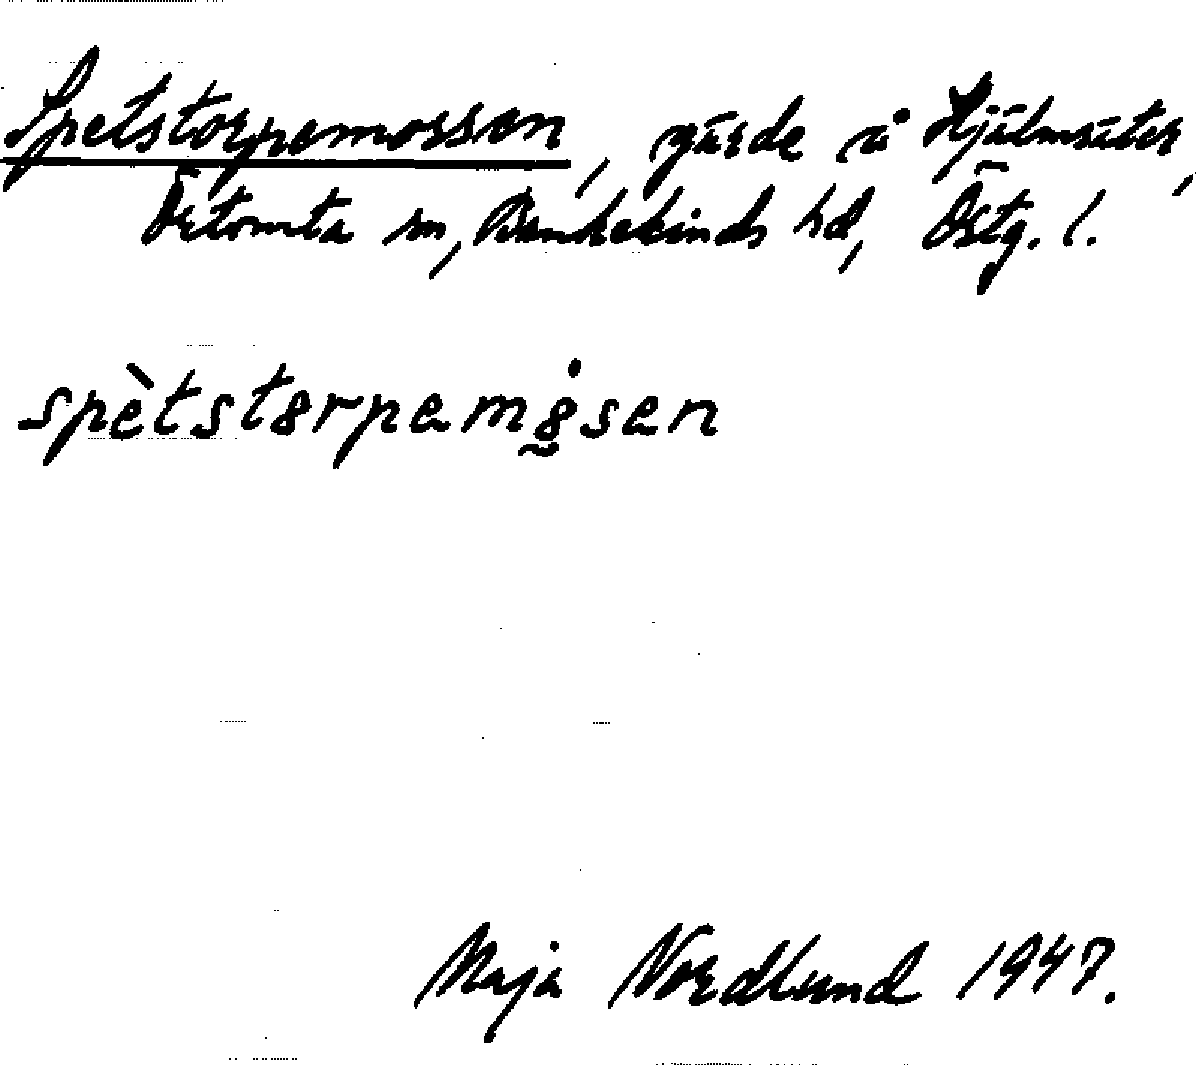 Spetstorpemossen, gärde å Hjälmsäter,
Örtomta sn, Bankekinds hd, Östg. l.
spètstɵrpemɵ̰̇sen
Maja Nordlund 1947.